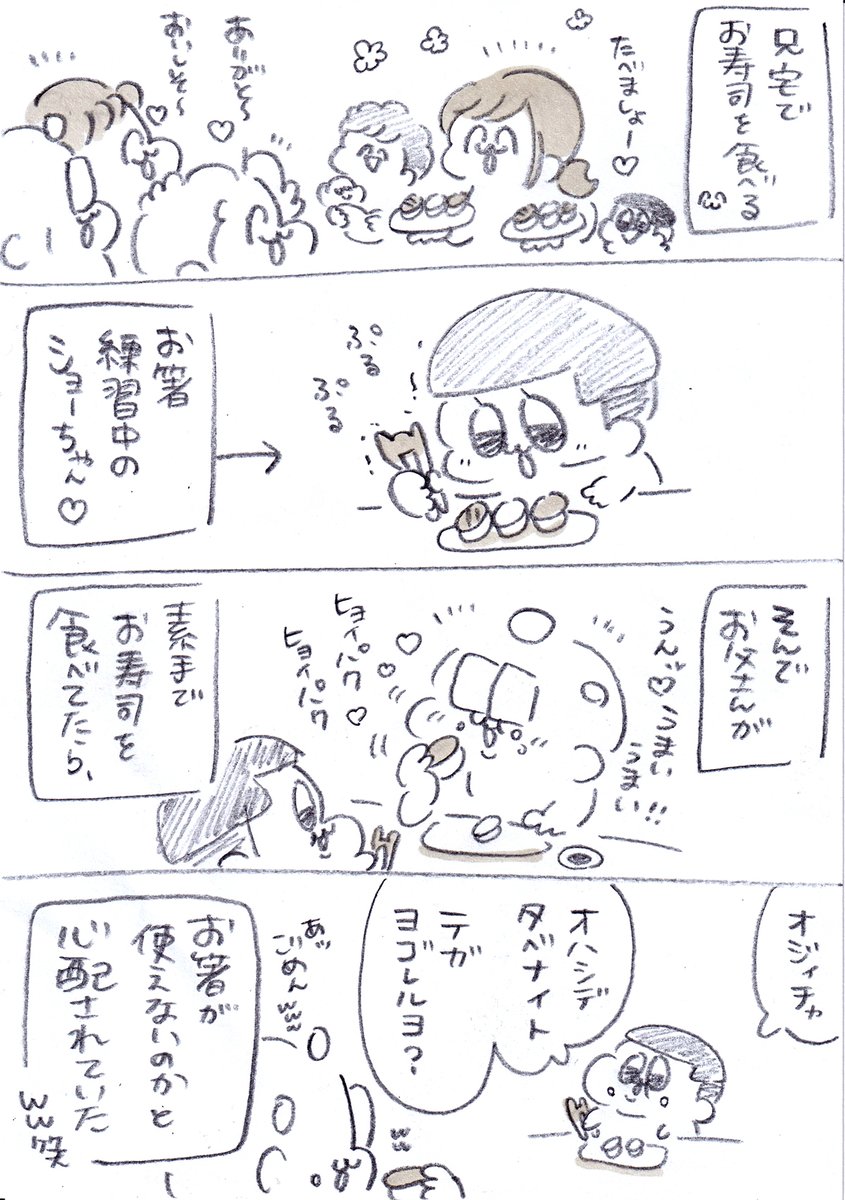 兄宅で
お寿司を食べる
たべましょー♡
ありがとぅ〜♡
おいしそ〜♡
ぷる
ぷる
お箸
練習中の
ショーちゃん♡
そんで
お父さんが
うんっ♡うまい
うまい!!
ヒョイパク
ヒョイパク
素手で
お寿司を
食べてたら、
オジィチャ
オハシデ
タベナイト
テガ
ヨゴレルヨ?
あっ
ごめんwww
ww
お箸が
使えないのかと
心配されていた
www笑